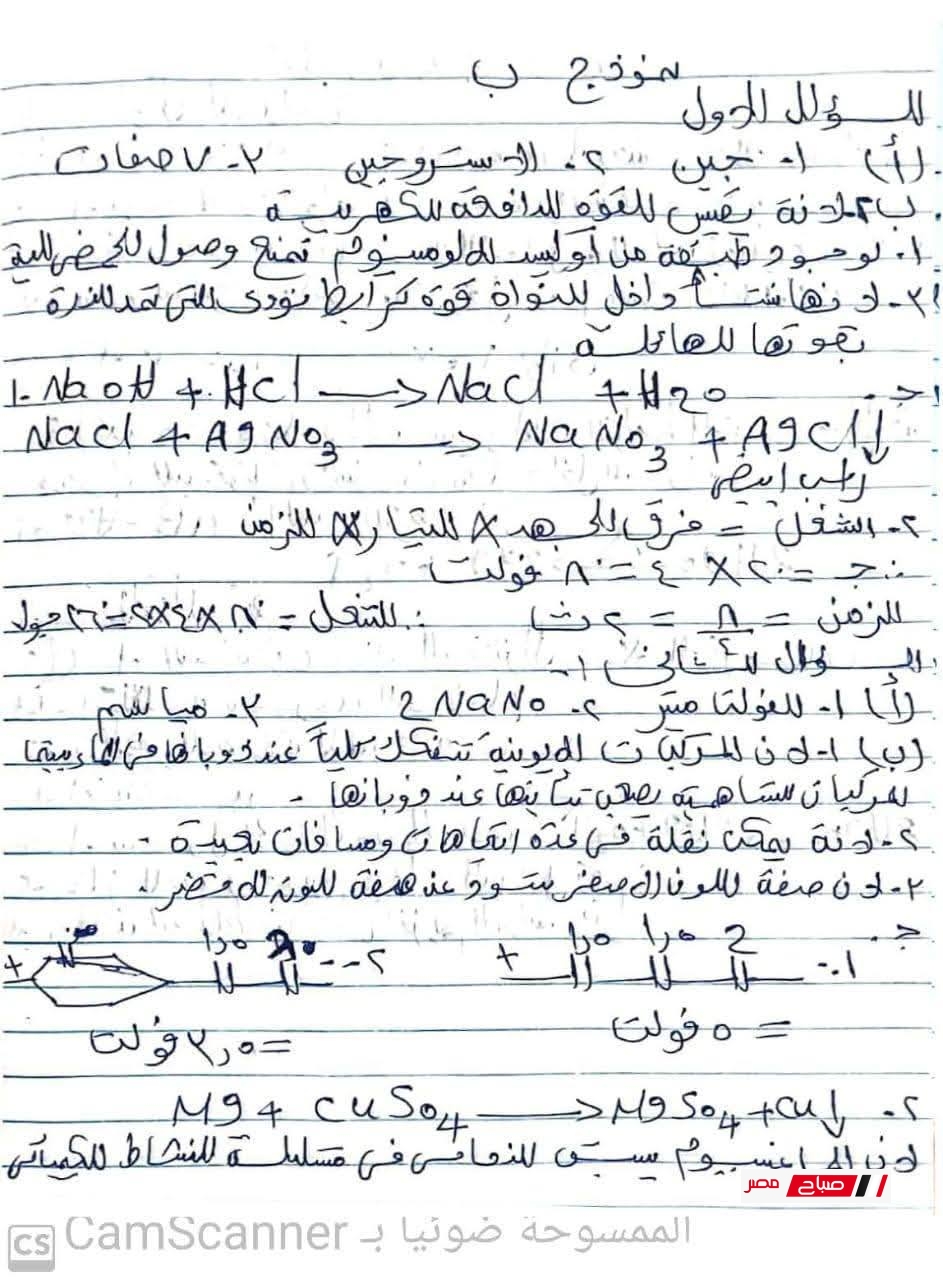 نموذج ب
السؤال الأول
(أ) ١- جين ٢- الاستروجين ٣- ٧ صفات
ب ٢- لانة يقيس القوة الدافعة الكهربية
١- لوجود طبقة من أوكسيد الألومنيوم تمنع وصول الحمض الية
٣- لانها تنشأ داخل النواة قوة ترابط نووى التى تمد الذرة
بقوتها الهائلة
ج- 1- NaOH + HCl → NaCl + H2O
NaCl + AgNO3 → NaNO3 + AgCl↓
راسب ابيض
٢- الشغل = فرق الجهد × التيار × الزمن
جـ = ٢٠ × ٤ = ٨٠ فولت
الزمن = ٨/٤ = ٢ ث ∴ الشغل = ٨٠×٤×٢=
السؤال الثانى
(أ) ١- الفولتا ميتر ٢- 2NaNo ٣-
(ب) ١- لان المركبات الايونية تتفكك كلياً عند ذوبانها فى الماء بينما
المركبات التساهمية يصعب تأينها عند ذوبانها -
٢- لانة يمكن نقلة فى عدة اتجاهات ومسافات بعيدة -
٣- لان صفة اللون الاصفر بتسود عند صفة اللون الاخضر.
ج-
١- ٢ ١٫٥ ١٫٥ +
٢- ١٫٥ +
= ٥ فولت
= ٣٫٥ فولت
٢- Mg + CuSo4 → MgSo4 + Cu↓
لان الماغنسيوم يسبق النحاس فى متسلسلة النشاط الكيميائى
صباح مصر
الممسوحة ضوئيا بـ CamScanner
CS